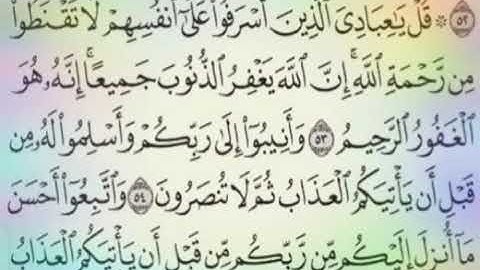 ۝٥٢ ۞ قُلْ يَٰعِبَادِىَ ٱلَّذِينَ أَسْرَفُوا۟ عَلَىٰٓ أَنفُسِهِمْ لَا تَقْنَطُوا۟
مِن رَّحْمَةِ ٱللَّهِ ۚ إِنَّ ٱللَّهَ يَغْفِرُ ٱلذُّنُوبَ جَمِيعًا ۚ إِنَّهُۥ هُوَ
ٱلْغَفُورُ ٱلرَّحِيمُ ۝٥٣ وَأَنِيبُوٓا۟ إِلَىٰ رَبِّكُمْ وَأَسْلِمُوا۟ لَهُۥ مِن
قَبْلِ أَن يَأْتِيَكُمُ ٱلْعَذَابُ ثُمَّ لَا تُنصَرُونَ ۝٥٤ وَٱتَّبِعُوٓا۟ أَحْسَنَ
مَآ أُنزِلَ إِلَيْكُم مِّن رَّبِّكُم مِّن قَبْلِ أَن يَأْتِيَكُمُ ٱلْعَذَابُ